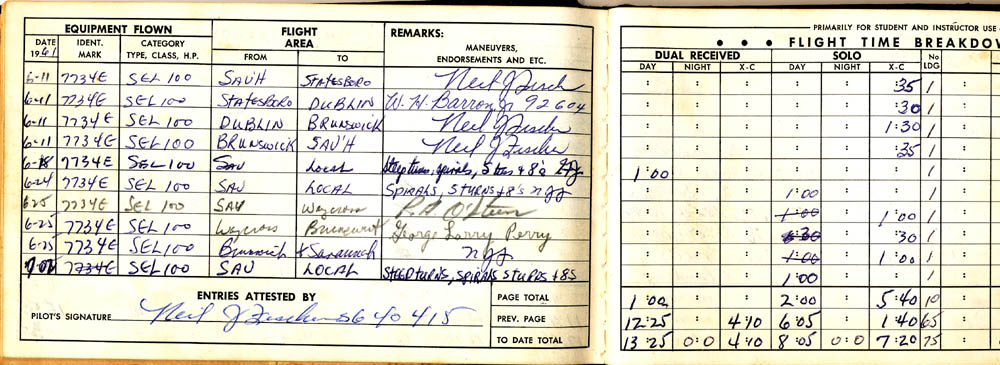 EQUIPMENT FLOWN FLIGHT AREA REMARKS:
DATE 1961 IDENT. MARK CATEGORY TYPE, CLASS, H.P. FROM TO MANEUVERS, ENDORSEMENTS AND ETC.
6-11 7734E SEL 100 SAV'H STATESBORO Neil J Fischer
6-11 7734E SEL 100 STATESBORO DUBLIN W. H. Barron Jr 92604
6-11 7734E SEL 100 DUBLIN BRUNSWICK Neil J Fischer
6-11 7734E SEL 100 BRUNSWICK SAV'H Neil J Fischer
6-18 7734E SEL 100 SAV LOCAL Steep turns, spirals, S turns + 8's
6-24 7734E SEL 100 SAV LOCAL SPIRALS, S TURNS + 8's njf
6-25 7734E SEL 100 SAV Waycross R.A. O'Steen
6-25 7734E SEL 100 Waycross Brunswick George Larry Perry
6-25 7734E SEL 100 Brunswick + Savannah njf
7734E SEL 100 SAV LOCAL STEEP TURNS, SPIRALS S TURNS + 8S
ENTRIES ATTESTED BY
PILOT'S SIGNATURE Neil J Fischer S6 40 415
PAGE TOTAL
PREV. PAGE
TO DATE TOTAL
PRIMARILY FOR STUDENT AND INSTRUCTOR USE
• • • FLIGHT TIME BREAKDOW
DUAL RECEIVED SOLO No LDG
DAY NIGHT X-C DAY NIGHT X-C
:35 1
:30 1
1:30 1
:35 1
1:00 1
1:00 1
1:00 1:00 1
:30 :30 1
1:00 1:00 1
1:00 1
1:00 2:00 5:40 10
12:25 4:10 6:05 1:40 65
13:25 0:0 4:10 8:05 0:0 7:20 75